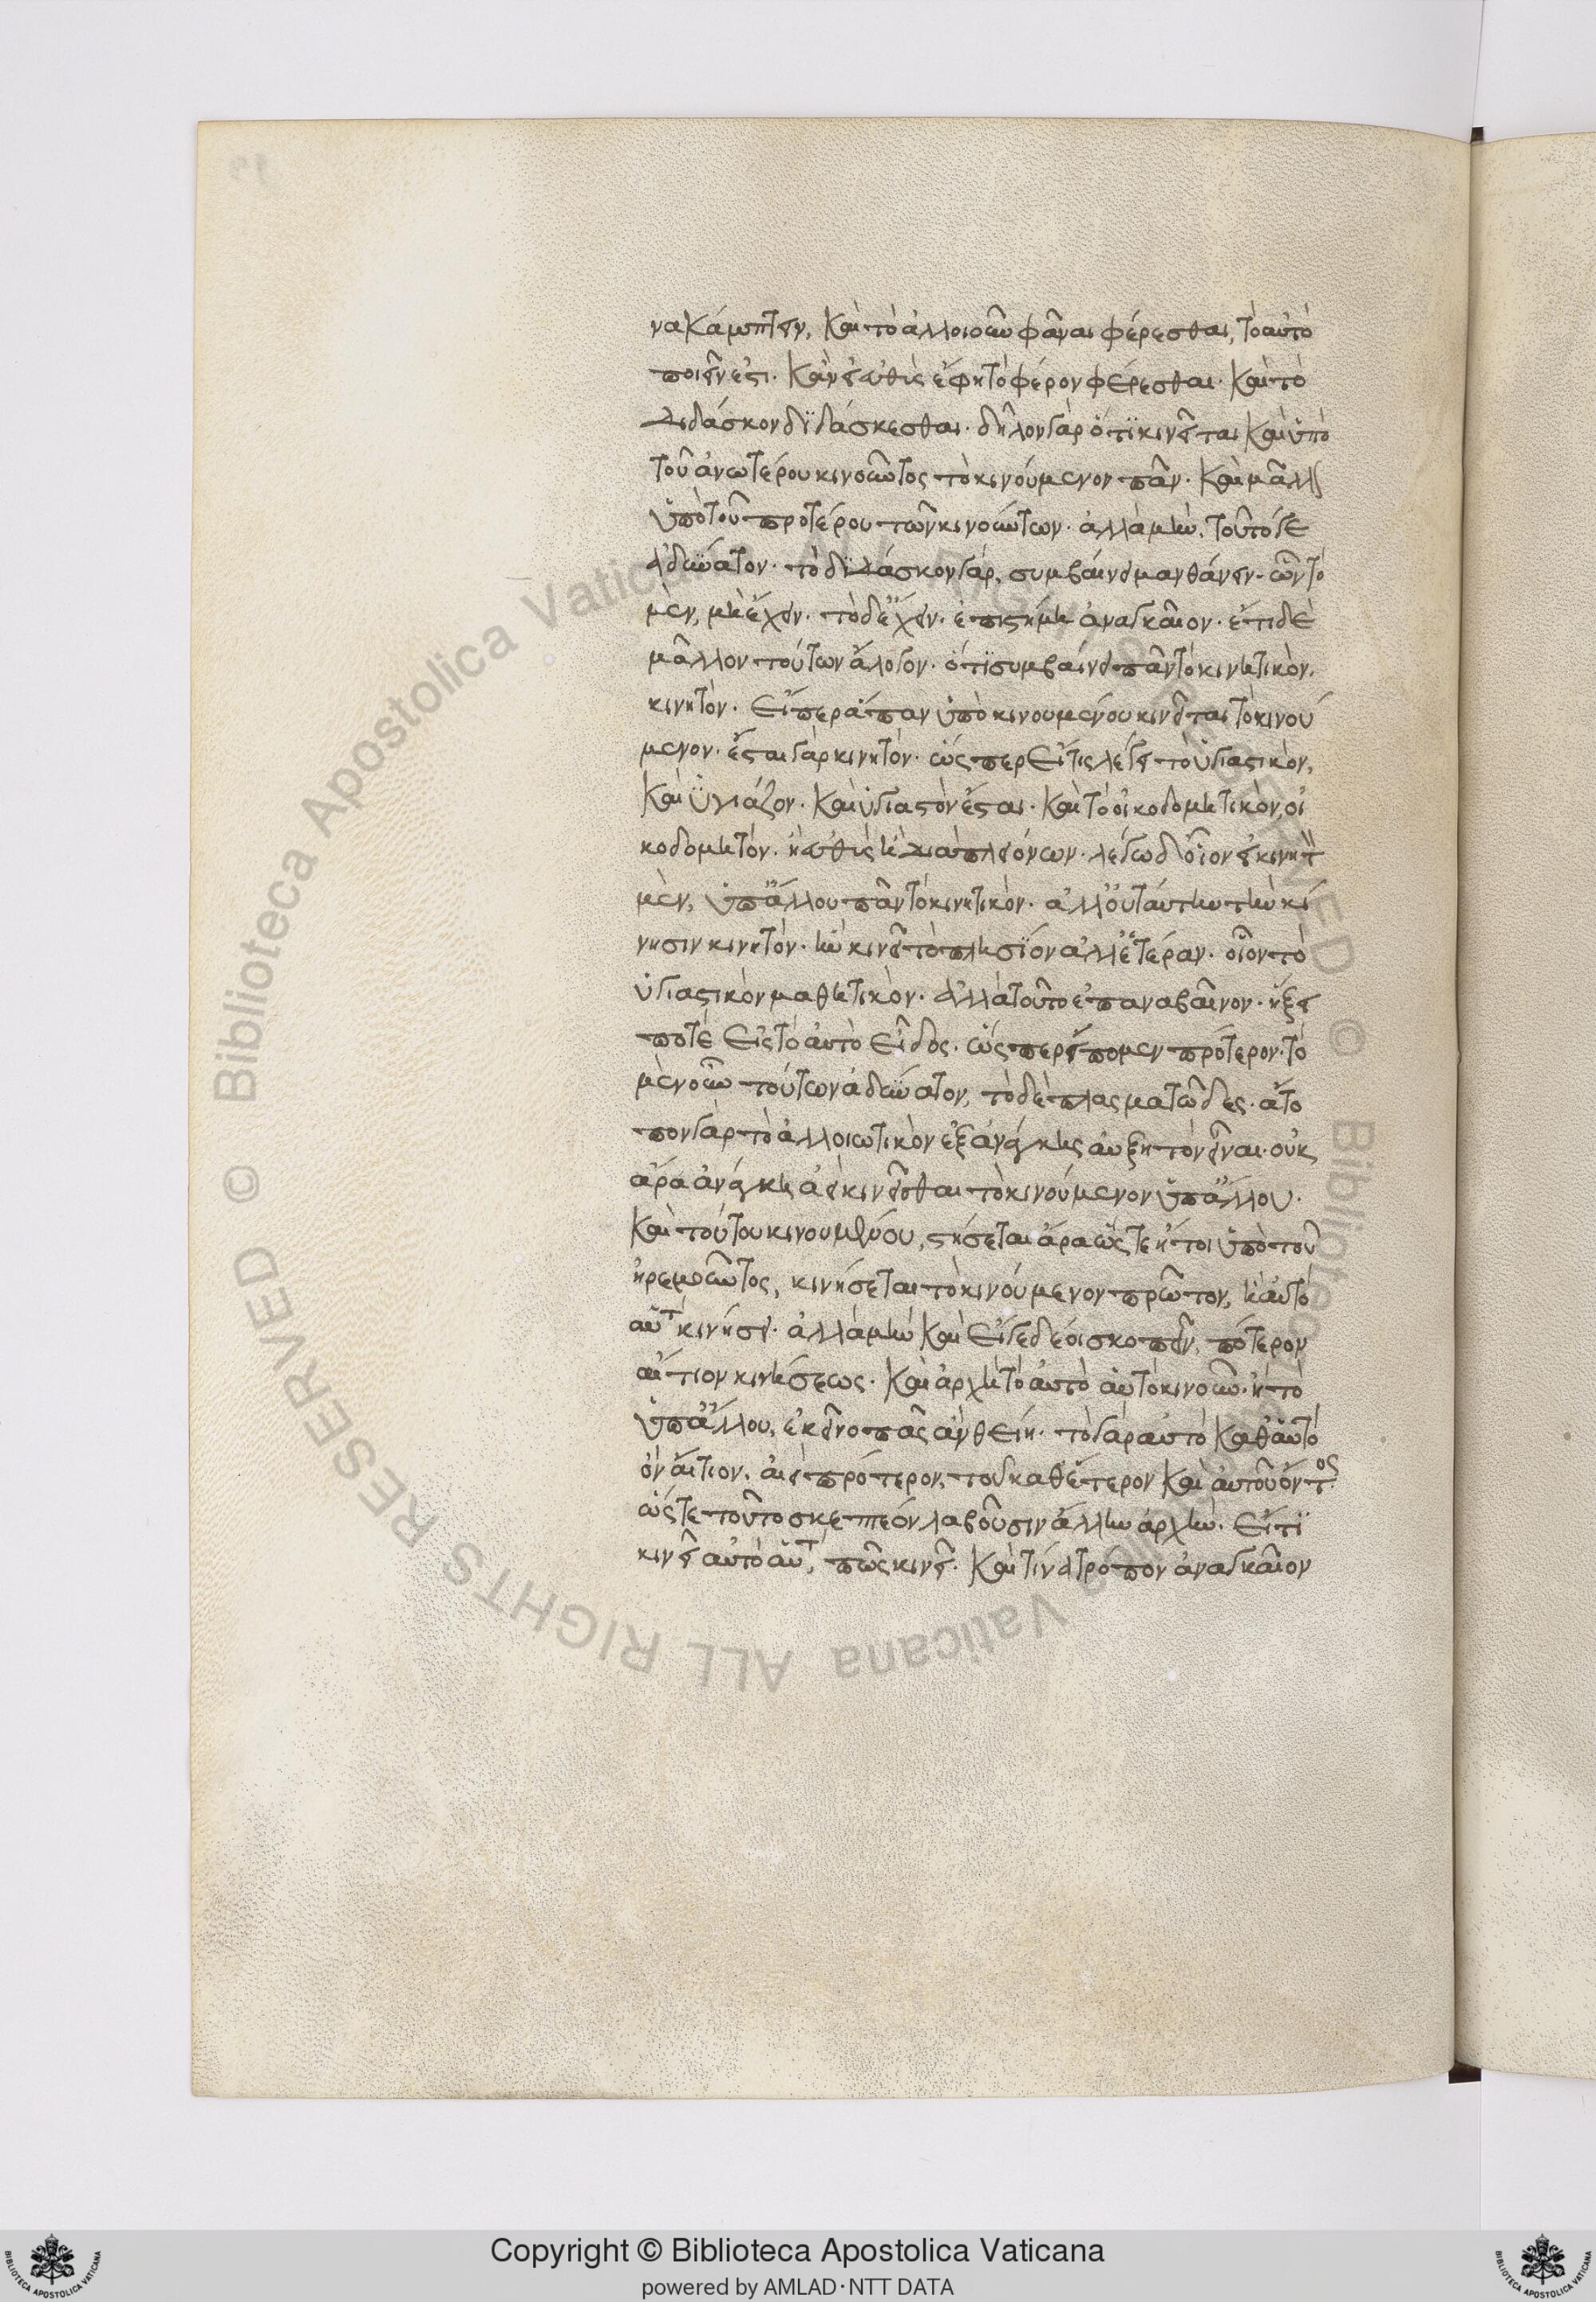 νακάμπτειν, καὶ τὸ ἀλλοιοῦν φάναι φέρεσθαι, τὸ αὐτὸ
ποιεῖν ἐστι. κἂν εἰ αὖθις ἔφη τὸ φέρον φέρεσθαι. καὶ τὸ
διδάσκον διδάσκεσθαι. δῆλον γὰρ ὅτι κινεῖται καὶ ὑπὸ
τοῦ ἀνωτέρου κινοῦντος τὸ κινούμενον πᾶν. καὶ μᾶλλ
ὑπὸ τοῦ προτέρου τῶν κινούντων. ἀλλὰ μὴν, τοῦτό γε
ἀδύνατον. τὸ διδάσκον γὰρ, συμβαίνει μανθάνειν. ὧν τὸ
μὲν, μὴ ἔχειν. τὸ δὲ ἔχειν. ἐπιστήμη ἀναγκαῖον. ἔτι δὲ
μᾶλλον τούτων ἄλογον. ὅτι συμβαίνει πᾶν τὸ κινητικὸν,
κινητόν. εἴπερ ἅπαν ὑπὸ κινουμένου κινεῖται τὸ κινού
μενον. ἔσται γὰρ κινητόν. ὥσπερ εἴ τις λέγει τὸ ὑγιαστικὸν,
καὶ ὑγιάζον. καὶ ὑγιαστὸν ἔσται. καὶ τὸ οἰκοδομητικὸν, οἰ
κοδομητόν. ἢ εὐθὺς ἢ διὰ πλειόνων. λέγω δ οἷον εἰ κινητ
μὲν, ὑπ ἄλλου πᾶν τὸ κινητικὸν. ἀλλ οὐ ταύτην τὴν κί
νησιν κινητόν. ἣν κινεῖ τὸ πλησίον ἀλλ ἑτέραν. οἷον τὸ
ὑγιαστικὸν μαθητικὸν. ἀλλὰ τοῦτο ἐπαναβαῖνον. ἥξει
ποτὲ εἰς τὸ αὐτὸ εἶδος. ὥσπερ εἴπομεν πρότερον. τὸ
μὲν οὖν τούτων ἀδύνατον, τὸ δὲ πλασματῶδες. ἄτο
πον γὰρ τὸ ἀλλοιωτικὸν ἐξ ἀνάγκης αὐξητὸν εἶναι. οὐκ
ἄρα ἀνάγκη ἀεὶ κινεῖσθαι τὸ κινούμενον ὑπ ἄλλου.
καὶ τούτου κινουμένου, στήσεται ἄρα ὥστε ἤτοι ὑπὸ τοῦ
ἠρεμοῦντος, κινήσεται τὸ κινούμενον πρῶτον, ἢ αὐτὸ
αὑτ κινήσει. ἀλλὰ μὴν καὶ εἴ γε δέοι σκοπεῖν, πότερον
αἴτιον κινήσεως. καὶ ἀρχὴ τὸ αὐτὸ αὑτὸ κινοῦν. ἢ τὸ
ὑπ ἄλλου, ἐκεῖνο πᾶς ἂν θείη. τὸ γὰρ αὐτὸ καθ αὑτὸ
ὂν αἴτιον, ἀεὶ πρότερον, τοῦ καθ ἕτερον καὶ αὐτοῦ ὄντος.
ὥστε τοῦτο σκεπτέον λαβοῦσιν ἄλλην ἀρχὴν. εἴ τι
κινεῖ αὐτὸ αὑτ, πῶς κινεῖ. καὶ τίνα τρόπον ἀναγκαῖον
Copyright © Biblioteca Apostolica Vaticana
powered by AMLAD·NTT DATA